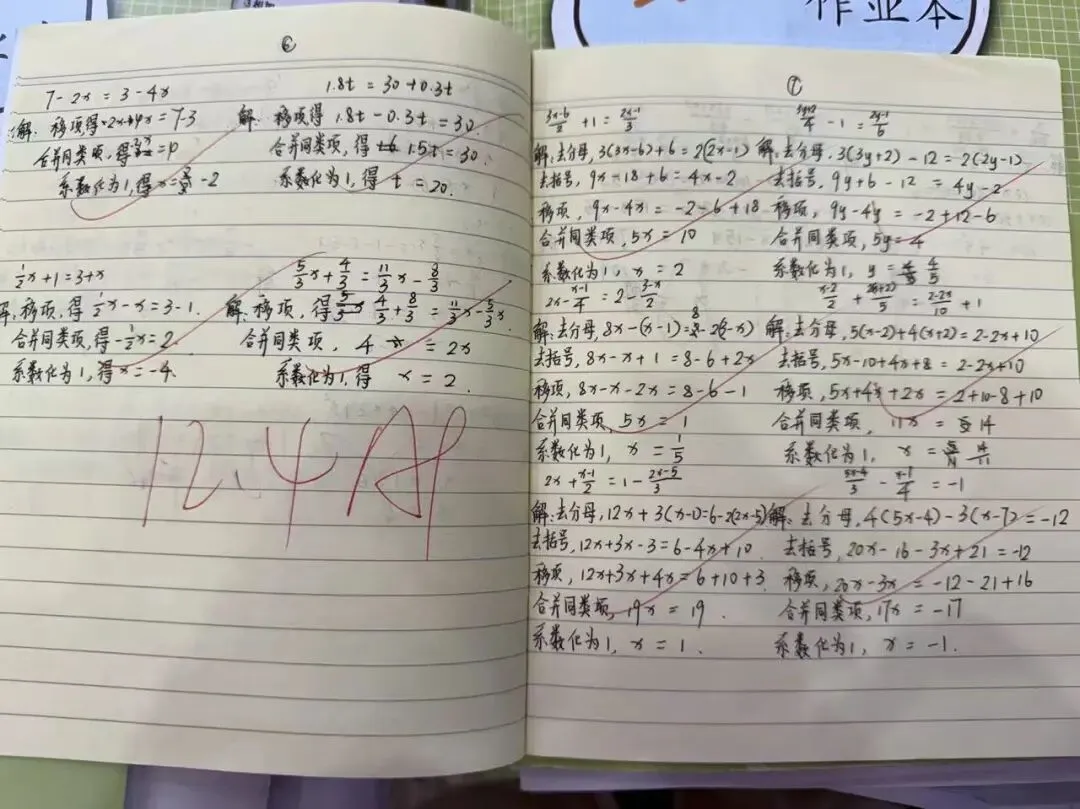 作业本
⑥
7-2x=3-4x
解:移项得-2x+4x=7-3
合并同类项,得
系数化为1,得x=-2
1.8t=30+0.3t
解:移项得1.8t-0.3t=30.
合并同类项,得1.5t=30.
系数化为1,得t=20.
1/2x+1=3+x
解,移项,得1/2x-x=3-1.
合并同类项,得-1/2x=2.
系数化为1,得x=-4.
5/3x+4/3=11/3x-8/3
解:移项,得4/3+8/3=11/3x-5/3x.
合并同类项,4=2x
系数化为1,得x=2.
12.4
⑦
(3x-6)/2+1=(2x-1)/3
解:去分母,3(3x-6)+6=2(2x-1)
去括号,9x-18+6=4x-2
移项,9x-4x=-2-6+18
合并同类项,5x=10
系数化为1,x=2
(3y+2)/4-1=(2y-1)/6
解:去分母,3(3y+2)-12=2(2y-1)
去括号,9y+6-12=4y-2
移项,9y-4y=-2+12-6
合并同类项,5y=4
系数化为1,y=4/5
2x-(x-1)/4=2-(3-x)/2
解:去分母,8x-(x-1)=8-2(3-x)
去括号,8x-x+1=8-6+2x
移项,8x-x-2x=8-6-1
合并同类项,5x=1
系数化为1,x=1/5
(x-2)/2+2(x+2)/5=(2-2x)/10+1
解:去分母,5(x-2)+4(x+2)=2-2x+10
去括号,5x-10+4x+8=2-2x+10
移项,5x+4x+2x=2+10-8+10
合并同类项,11x=14
系数化为1,x=14/11
2x+(x-1)/2=1-(2x-5)/3
解:去分母,12x+3(x-1)=6-2(2x-5)
去括号,12x+3x-3=6-4x+10.
移项,12x+3x+4x=6+10+3
合并同类项,19x=19.
系数化为1,x=1.
(5x-4)/3-(x-7)/4=-1
解:去分母,4(5x-4)-3(x-7)=-12
去括号,20x-16-3x+21=-12
移项,20x-3x=-12-21+16
合并同类项,17x=-17
系数化为1,x=-1.